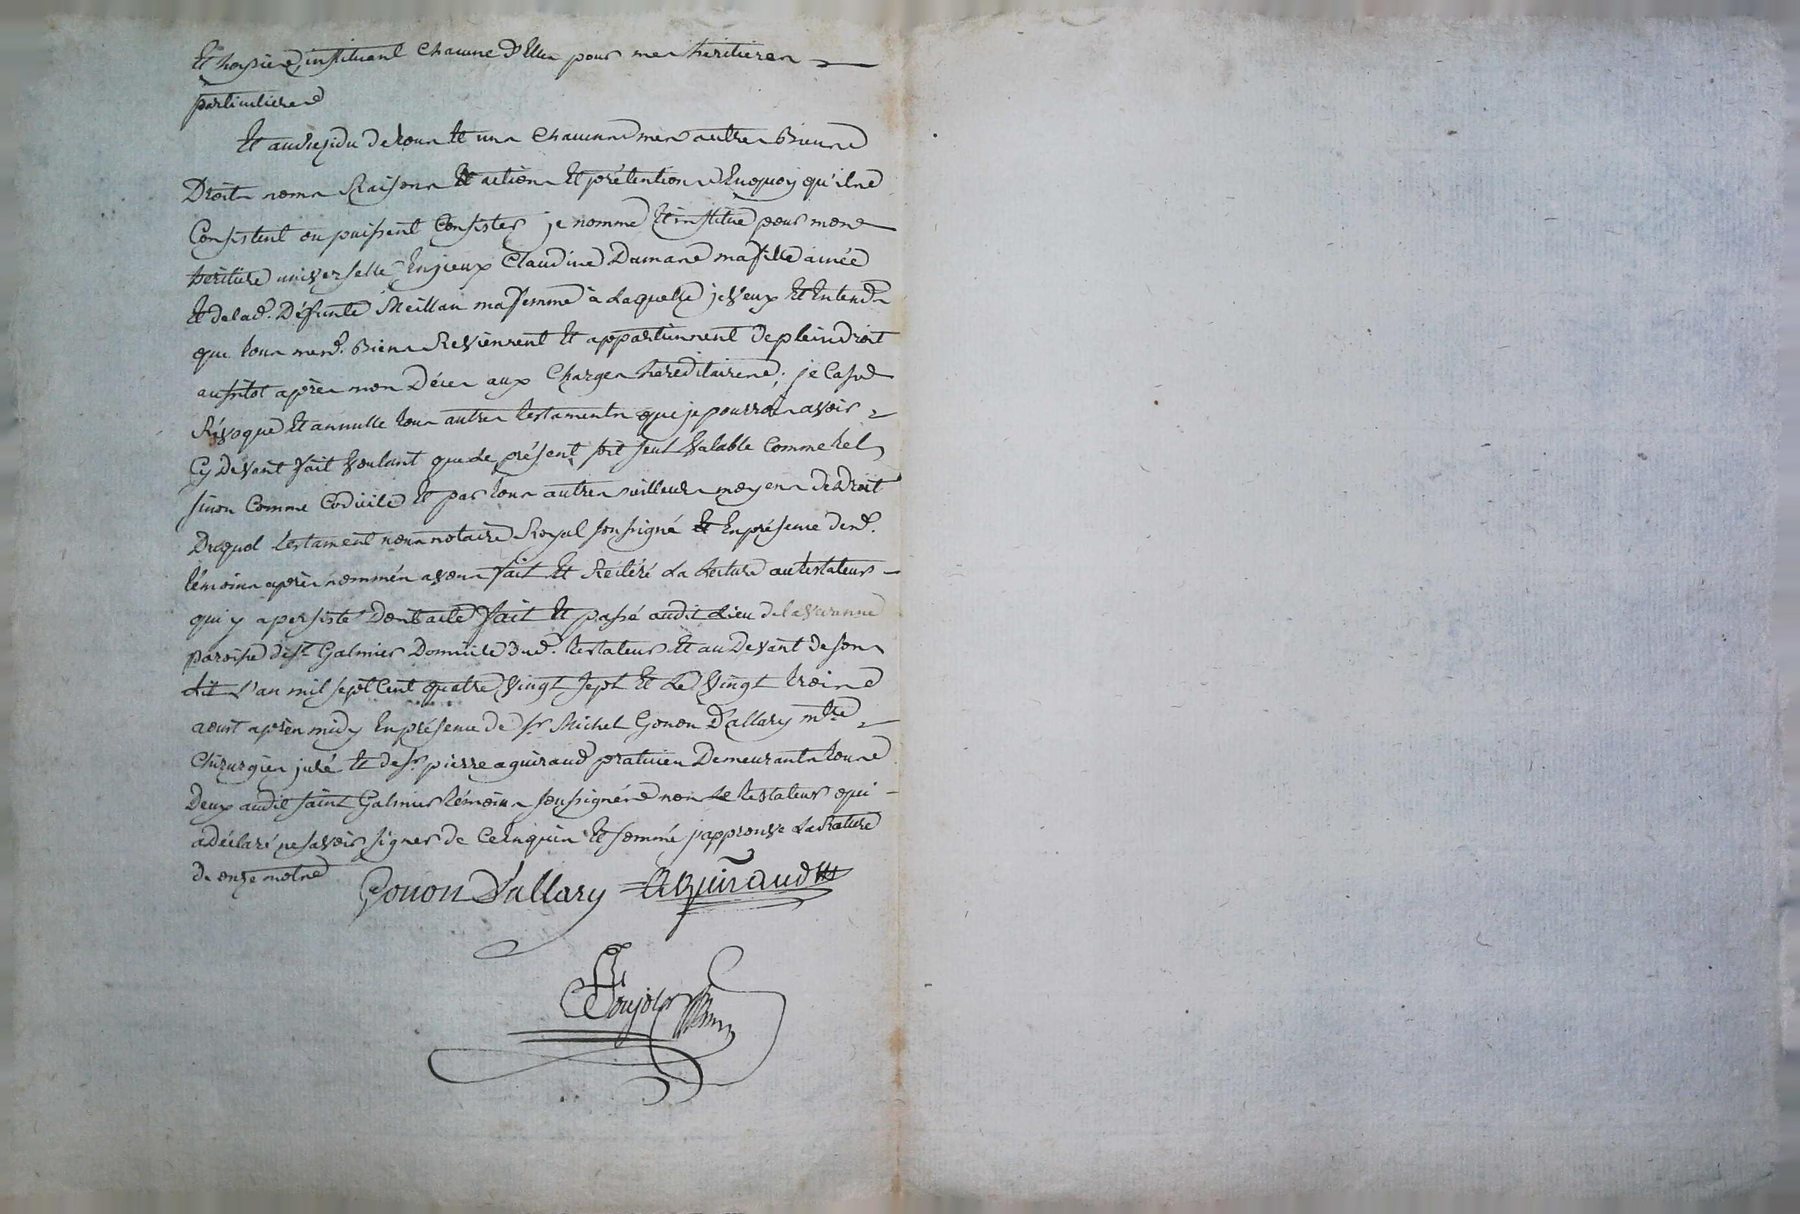 instituant chacune d'Elles pour mes heritieres
particulieres
Et au residu de tous et uns chacuns mes autres Biens
Droits noms Raisons et actions et prétentions Enquoy qu'ils
Consistent ou puissent Consister je nomme et institue pour mon
heritiere universelle Claudine Dumas ma fille ainée
et de lad. Défunte Meillan ma femme à Laquelle je Veux et Entends
que tous mesd. Biens Reviennent et appartiennent de plein droit
aussitot après mon Décès aux Charges hereditaires; je Casse
Révoque et annulle tous autres testaments que je pourrois avoir
Cy Devant fait Voulant que Le présent soit seul Valable Comme tel
sinon Comme Codicile et par tous autres meilleurs moyens de Droit
Duquel testament nous notaire Royal soussigné et En présence desd.
témoins après nommés avons fait et Réitéré La Lecture au testateur
qui y a persisté Dont acte fait et passé audit Lieu de la Varenne
paroisse de St Galmier Domicile dud. testateur et au Devant de son
dit L'an mil sept Cent quatre Vingt sept et Le Vingt trois
aoust après midy En présence de sr Michel Gonon D'allary mtre
Chirurgien juré et de sr pierre aguiraud praticien Demeurants tous
Deux audit saint Galmier témoins soussignés non Le testateur qui
a déclaré ne savoir signer de ce Enquis et sommé j'approuve La Rature
de onze mots
Gonon D'allary Aguiraud